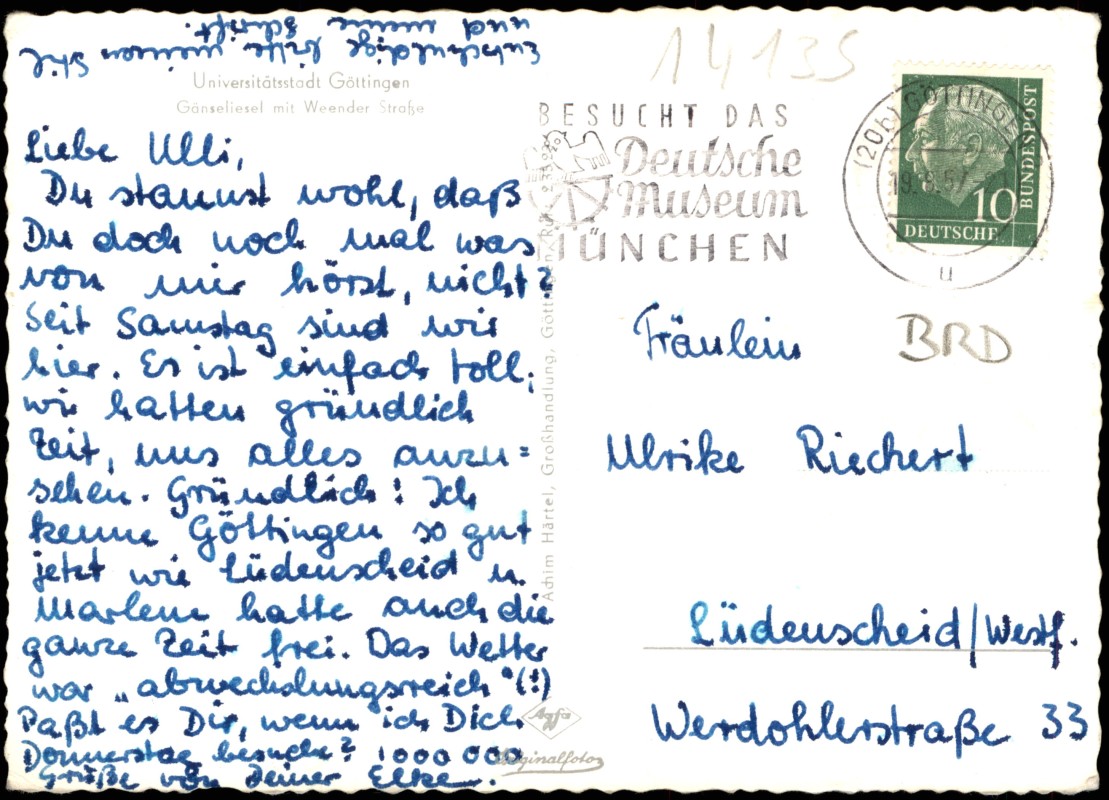 Universitätsstadt Göttingen
Gänseliesel mit Weender Straße
Liebe Ulli,
Du staunst wohl, daß
Du doch noch mal was
von mir hörst, nicht?
Seit Samstag sind wir
hier. Es ist einfach toll,
wir hatten gründlich
Zeit, uns alles anzu=
sehen. Gründlich! Ich
kenne Göttingen so gut
jetzt wie Lüdenscheid u.
Marlene hatte auch die
ganze Zeit frei. Das Wetter
war „abwechslungsreich"(!)
Paßt es Dir, wenn ich Dich
Donnerstag besuche? 1000 000
Grüße von Deiner Elke.
Entschuldige bitte meinen Stil
und meine Schrift.
Achim Härtel, Großhandlung, Göttingen
Agfa
Originalfoto
14135
BESUCHT DAS
Deutsche
Museum
MÜNCHEN
(20b) GÖTTINGEN
u
10
DEUTSCHE
BUNDESPOST
BRD
Fräulein
Ulrike Riechert
Lüdenscheid/Westf.
Werdohlerstraße 33